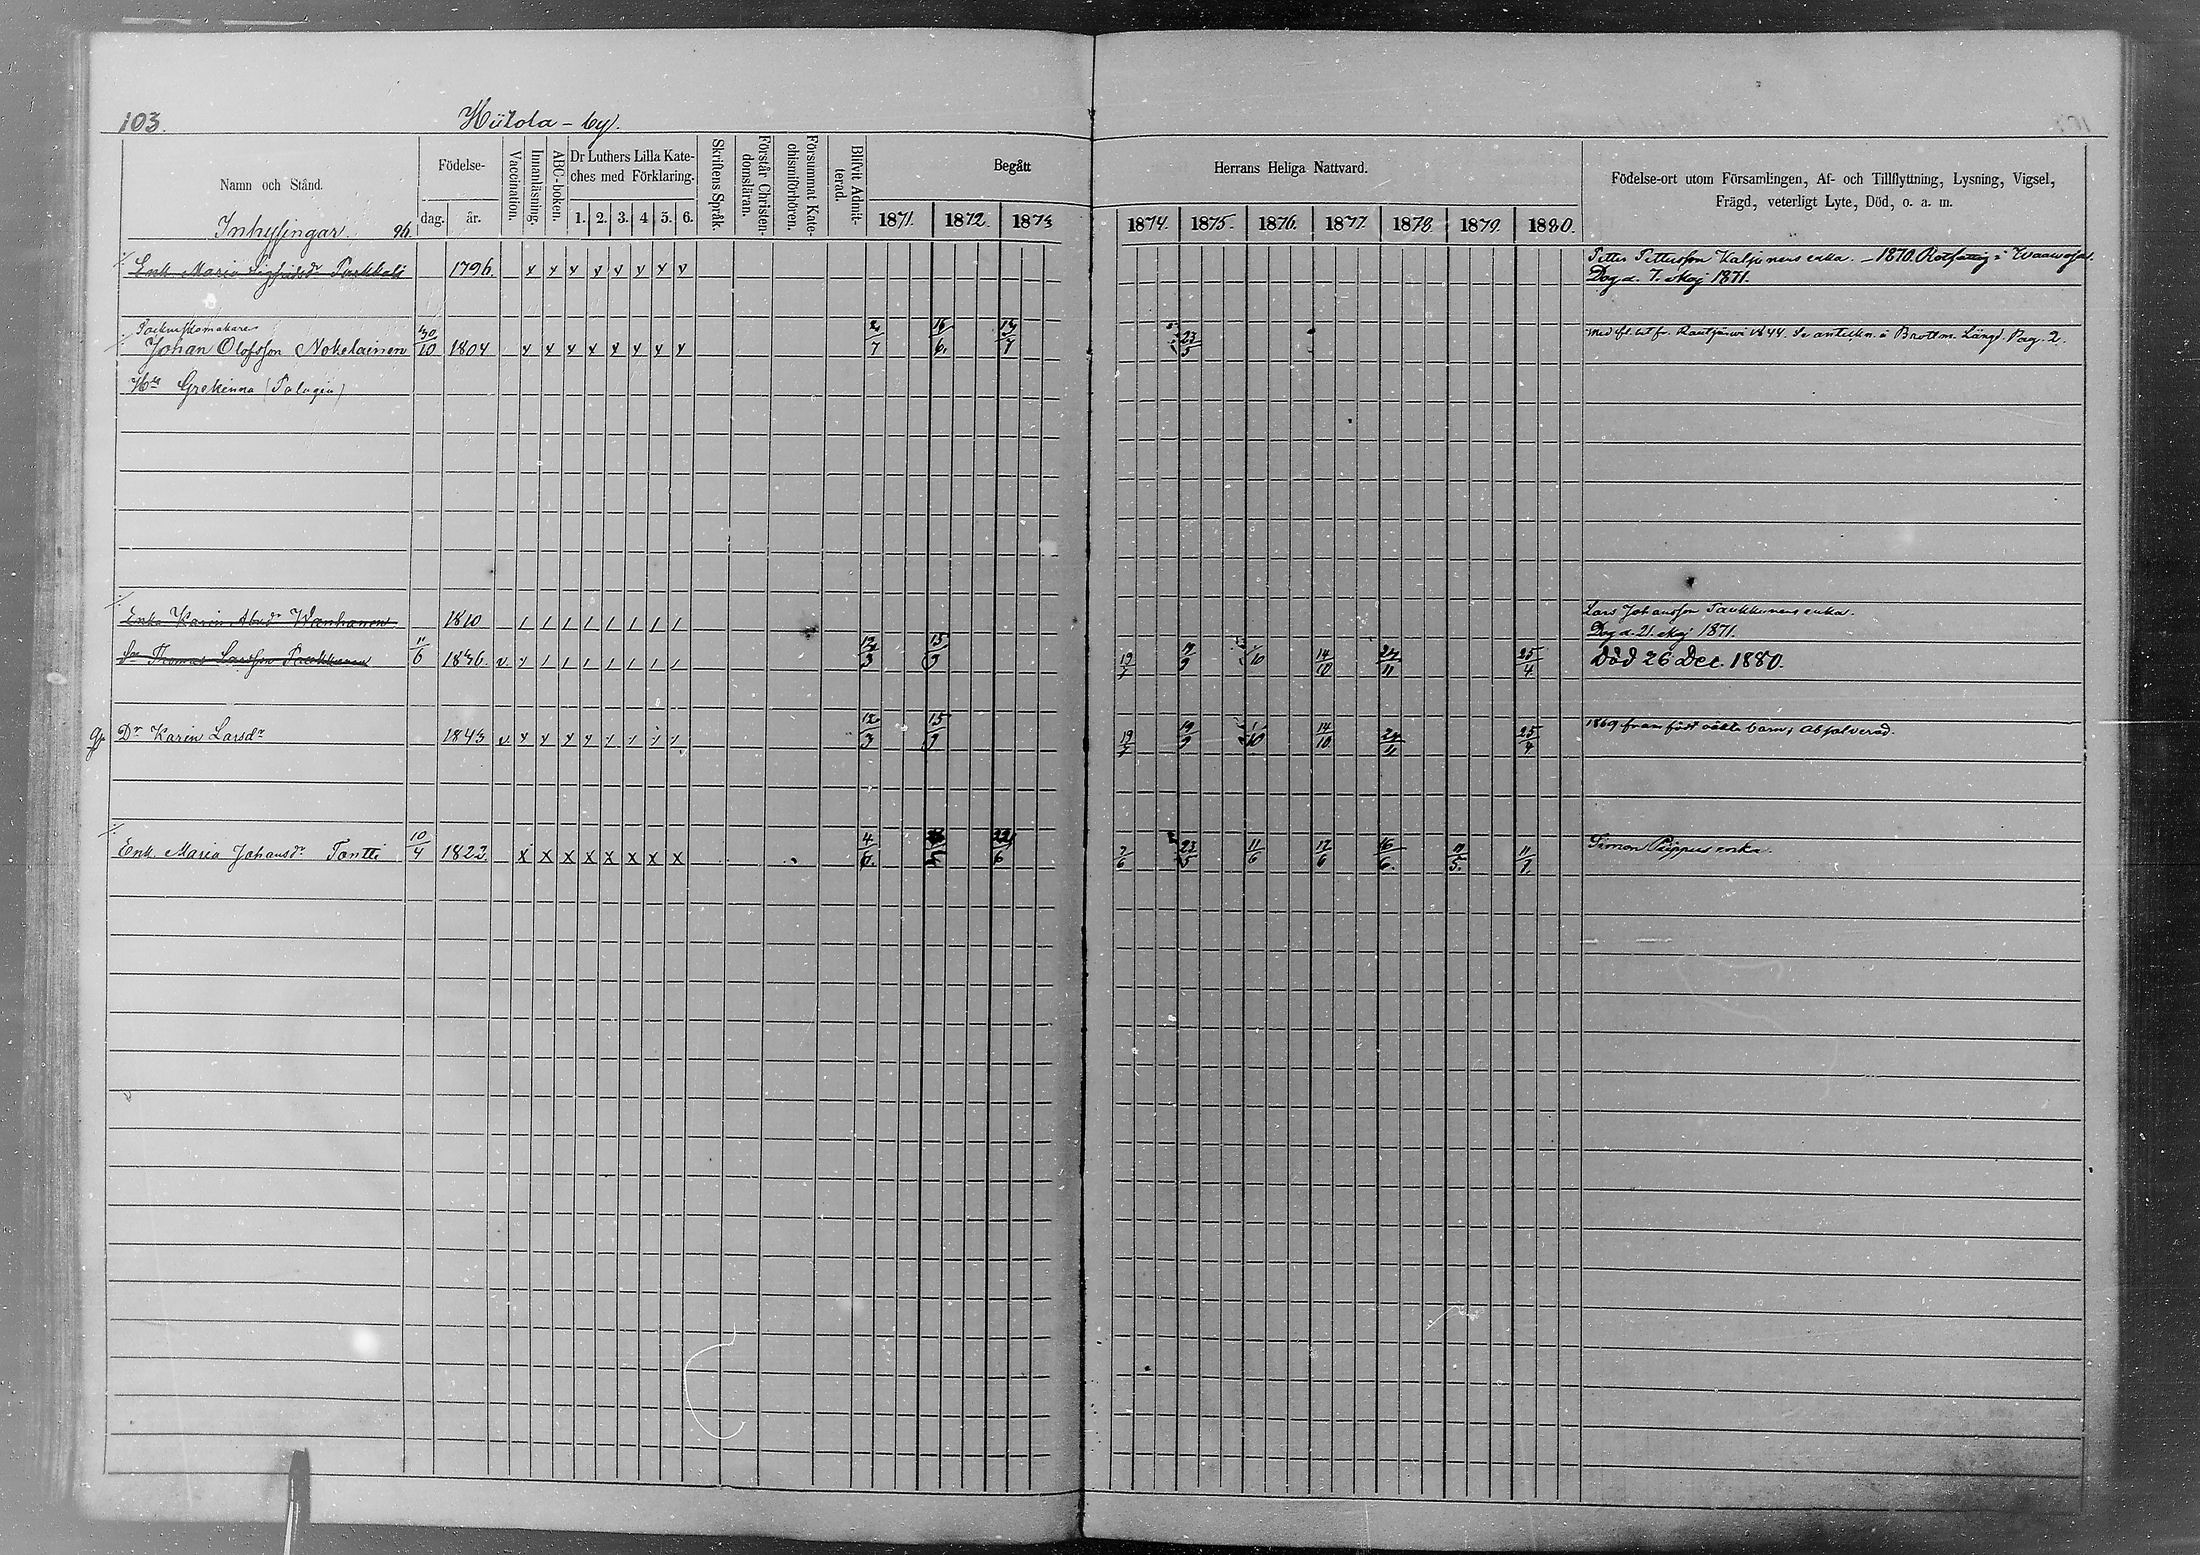 103.
Hiitola - by.
Namn och Stånd.
Födelse-
dag.
år.
Vaccination.
Innanläsning.
ABC-boken.
Dr Luthers Lilla Kate-
ches med Förklaring.
1. 2. 3. 4. 5. 6.
Skriftens Språk.
Förstår Christen-
domsläran.
Försummat Kate-
chismiförhören.
Blifvit Admit-
terad.
Begått
Herrans Heliga Nattvard.
1871. 1872. 1873
1874. 1875. 1876. 1877. 1878. 1879. 1880.
Födelse-ort utom Församlingen, Af- och Tillflyttning, Lysning, Vigsel,
Frägd, veterligt Lyte, Död, o. a. m.
Inhysingar.
Enk. Maria Sigfridsdr 1796. Petter Pettersson enka. - 1870.
Dog d. 7. Maj 1871.
Sockneskomakare
Johan Olofsson Nokelainen 30/10 1804 2/7 16/6. 13/7 23/5 1844. Se anteckn. i Brottm. Längd. Pag. 2.
Hu (Pelagia)
Enka Karin Wanhanen 1810 Lars Johansson enka.
Dog d. 21. Maj 1871.
Sn Thomas Larsson 11/6 1836. 12/3 15/9 14/10 25/4 Död 26 Dec. 1880.
Dr Karin Larsdr 1843 12/3 15/9 19/9 14/10 25/4 1869 framfödt oäkta barn, absolverad.
Enk. Maria Johansdr Tontti 10/4 1822. 4/6. 22/6 2/6 23/5 11/6 17/6 16/6. 11/5. Simon enka.